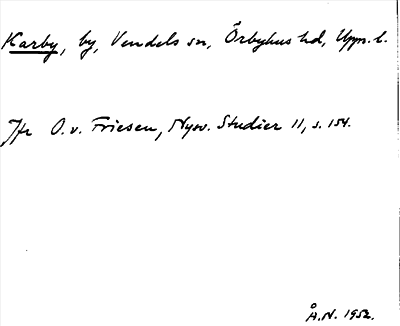 Karby, by, Vendels sn, Örbyhus hd, Upps. l.
Jfr O. v. Friesen, Nysv. Studier 11, s. 154.
Å.N. 1952.